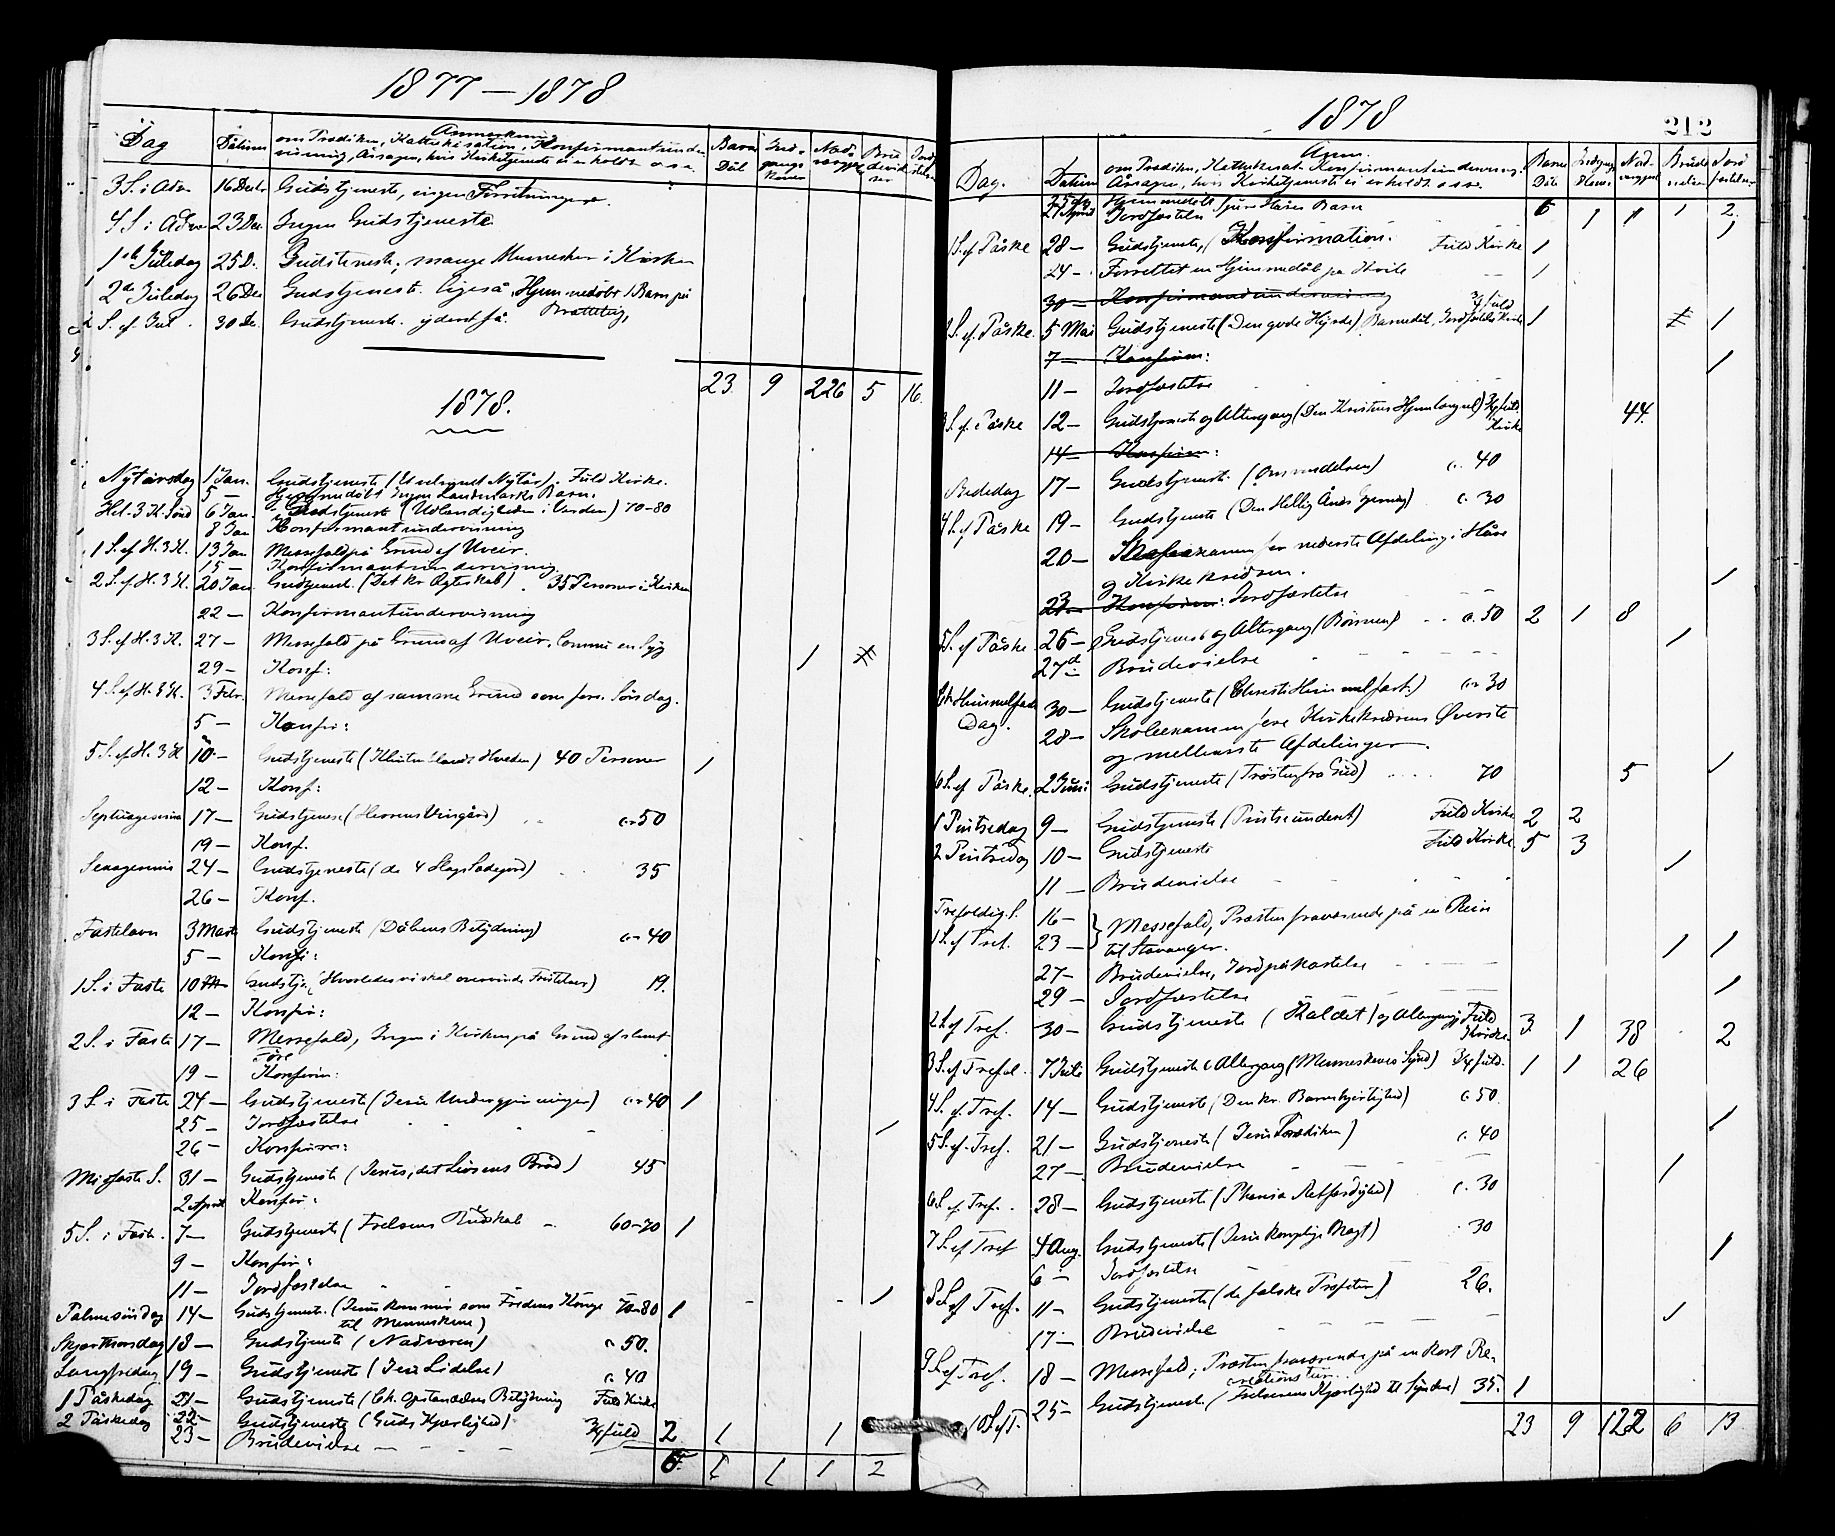 1877–1878
Dag Datum Anmerkning
om Prædiken, Katekisation, Konfirmantunder-
visning, Årsagen, hvis Kirketjeneste ei er holdt o.s.v. Barne Dåb Ind- gangs Koner Nad- vergjæ Brude vielser
3 S. i Adv. 16 Decbr Gudstjeneste, ingen Forretninger.
4 S. i Adv. 23 Dec. Ingen Gudstjeneste
1ste Juledag 25 D. Gudstjeneste, mange Mennesker i Kirken
2den Juledag 26 Dec Gudstjeneste. ligeså, Hjemmedøbt 1 Barn på
S. ef. Jul 30 De. Gudstjeneste. yderst få.
23 9 226 5 16
1878.
Nytårsdag 1 Jan. Gudstjeneste (Et velsignet Nytår). Fuld Kirke.
5 – Hjemmedøbt Barn.
Hel. 3 K. Sønd 6 Jan. Gudstjeneste ( i Verden) 70-80
8 Jan Konfirmantundervisning
1 S. ef. H. 3 K. 13 Jan Messefald på Grund af Uveir.
15 – Konfirmantundervisning
2 S. ef. H. 3 K. 20 Jan Gudstjenest. (Det kr. Ægteskab). 35 Personer i Kirken
22 – Konfirmantundervisning
3 S. ef H. 3 K. 27 – Messefald på Grund af Uveir. en Syg 1
29 – Konf:
4 S. ef H. 3 K. 3 Febr. Messefald af samme Grund som forr. Søndag.
5 – Konfir:
5 S. ef H. 3 K 10 – Gudstjeneste (Klinten blandt Hveden) 40 Personer 1
12 – Konf:
Septuagesima 17 – Gudstjenese (Herrens Vingård) ca 50
19 – Konf.
Sexagesima 24 – Gudstjeneste (de 4 Slags Sædejord) 35
26 – Konf.
Fastelavn 3 Marts Gudstjeneste (Dåbens Betydning) ca 40
5 – Konfi:
1 S. i Faste 10 Gudstje. (Hvorledes vi skal overvinde Fristelser) 19.
12 – Konfir:
2 S. i Faste 17 – Messefald, Ingen i Kirken på Grund af slemt
Føre
19 – Konfirm:
3 S. i Faste 24 – Gudstjeneste (Jesu Undergjerninger) ca 40 1
25 – Jordfæstelse 1
26 – Konfirm:
Midfaste S. 31 – Gudstjeneste (Jesus, det Livsens Brød) 45
2 April Konfir:
5 S. i Faste. 7 – Gudstjeneste (Frelsens Budskab 60-70 1
9 – Konfir:
11 – Jordfæstelse 1
Palmesöndag 14 – Gudstjeneste. (Jesus kommer som Fredens Konge 70-80 1
til Menneskene)
Skjærthorsdag 18 – Gudstjeneste (Nadveren) c 50.
Langfredag 19 – Gudstjeneste (Jesu Lidelse) c. 40
1 Påskedag 21 – Gudstjeneste (Ch. Opstandelses Betydning Fuld Kirke
2 Påskedag 22 – Gudstjeneste (Guds Kjærlighed) 3/4 fuld 2 1 1
23 – Brudevielse
6 1 1 1 2
1878
212
Dag. Datum Anm.
om Prædiken, Katekisat. Konfirmantundervisning.
Årsagen, hvis Kirketjeneste ei er holdt o.s.v. Barne Dåb Nad- Brude vielser Jord
25 Hjemmedöbt Barn 6 1 1 1 2
27 April Jordfæstelse 1
1 S. ef Påske 28 – Gudstjeneste, (Konfirmation. Fuld Kirke 1
24 – Forrettet en Hjemmedåb på 1
30 – Konfirmandundervisning
2 S. ef. Påske. 5 Mai Gudstjeneste (Den gode Hyrde) Barnedåb, Jordfæstelse 3/4 fuld Kirke 1 1
7 – Konfirm:
11 – Jordfæstelse 1
3 S. ef. Påske 12 – Gudstjeneste og Altergang (Den Kristnes Hjemlængsel) 3/4 fuld. Kirke 44.
14 – Konfirm:
Bededag 17 – Gudstjeneste. (Omvendelsen) c. 40
4 S. ef Påske 19 – Gudstjeneste (Den Hellig Ånds Gjerning) c. 30
20 – Skoleexamen for nederste Afdeling i Håre
og Kirkekredsen.
23 – Konfirm: Jordfæstelse 1
5 S. ef Påske 26 – Gudstjeneste og Altergang (Bönnen) c. 50 2 1 8
27 – Brudevielse 1
Kr. Himmelfarts
Dag. 30 – Gudstjeneste (Christi Himmelfart.) ca 30
28 – Skoleexamen for Kirkekredsens Øverste
og mellemste Afdelinger.
6 S. ef Påske. 2 Juni Gudstjeneste (Trösten fra Gud) 70 5 1
1 Pintsedag 9 – Gudstjeneste (Pintseunderet) Fuld Kirke 2 2
2 Pintsedag 10 – Gudstjeneste Fuld Kirke 5 3
11 – Brudevielse 1
Trefoldig. S. 16 – Messefald, Præsten fraværende på en Reise
1 S. ef Tref. 23 – til Stavanger.
27 – Brudevielse, Jordpåkastelse 1 1
29 – Jordfæstelse 1
2 S. ef Tref. 30 – Gudstjeneste (Kaldet) og Altergang Fuld Kirke 3. 1 38 2
3 S. ef Trefol. 7 Juli Gudstjeneste Altergang (Menneskenes Synd) 3/4 fuld. 1 1 26
4 S. ef. Tref. 14 – Gudstjeneste (Den kr. Barmhjertighed) c. 50.
5 S. ef. Tref. 21 – Gudstjeneste (Jesu Prædiken) c. 40 1
27 – Brudevielse 1
6 S. ef Tref. 28 – Gudstjeneste (Pharisæ. Retfærdighed) c. 30
7 S. ef Tref 4 Aug. Gudstjeneste (Jesu kongelige Magt) 30
6 – Jordfæstelse 1
8 S. ef Tref. 11 – Gudstjeneste (de falske Profeter) 26.
17 – Brudevielse 1
9 S. ef Tref. 18 – Messefald; Præsten fraværende på en kort Re-
10 S. ef T. 25 – Gudstjenest. (Frelserens Kjærlighed til Syndere) 35. 1
23 9 122 6 13